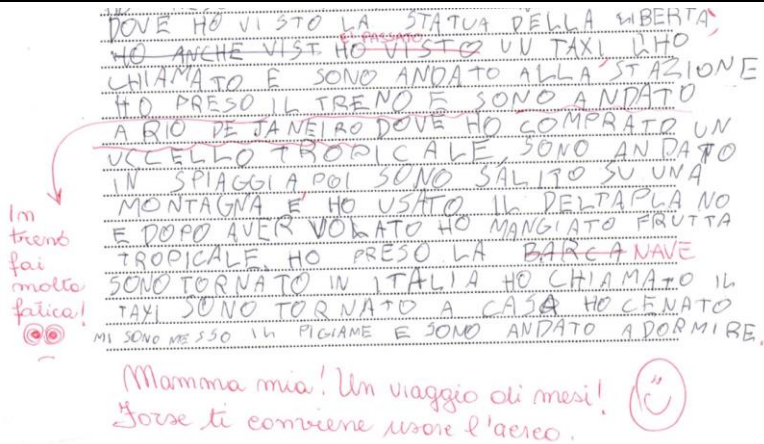 DOVE HO VISTO LA STATUA DELLA LIBERTA'
È PASSATO
HO ANCHE VIST HO VISTO UN TAXI L'HO
CHIAMATO E SONO ANDATO ALLA STAZIONE
HO PRESO IL TRENO E SONO ANDATO
A RIO DE JANEIRO DOVE HO COMPRATO UN
UCCELLO TROPICALE, SONO ANDATO
IN SPIAGGIA POI SONO SALITO SU UNA
MONTAGNA E HO USATO IL DELTAPLANO
E DOPO AVER VOLATO HO MANGIATO FRUTTA
TROPICALE. HO PRESO LA BARCA NAVE
SONO TORNATO IN ITALIA HO CHIAMATO IL
TAXI SONO TORNATO A CASA HO CENATO
MI SONO MESSO IL PIGIAME E SONO ANDATO A DORMIRE.
In
treno
fai
molta
fatica!
Mamma mia! Un viaggio di mesi!
Forse ti conviene usare l'aereo.